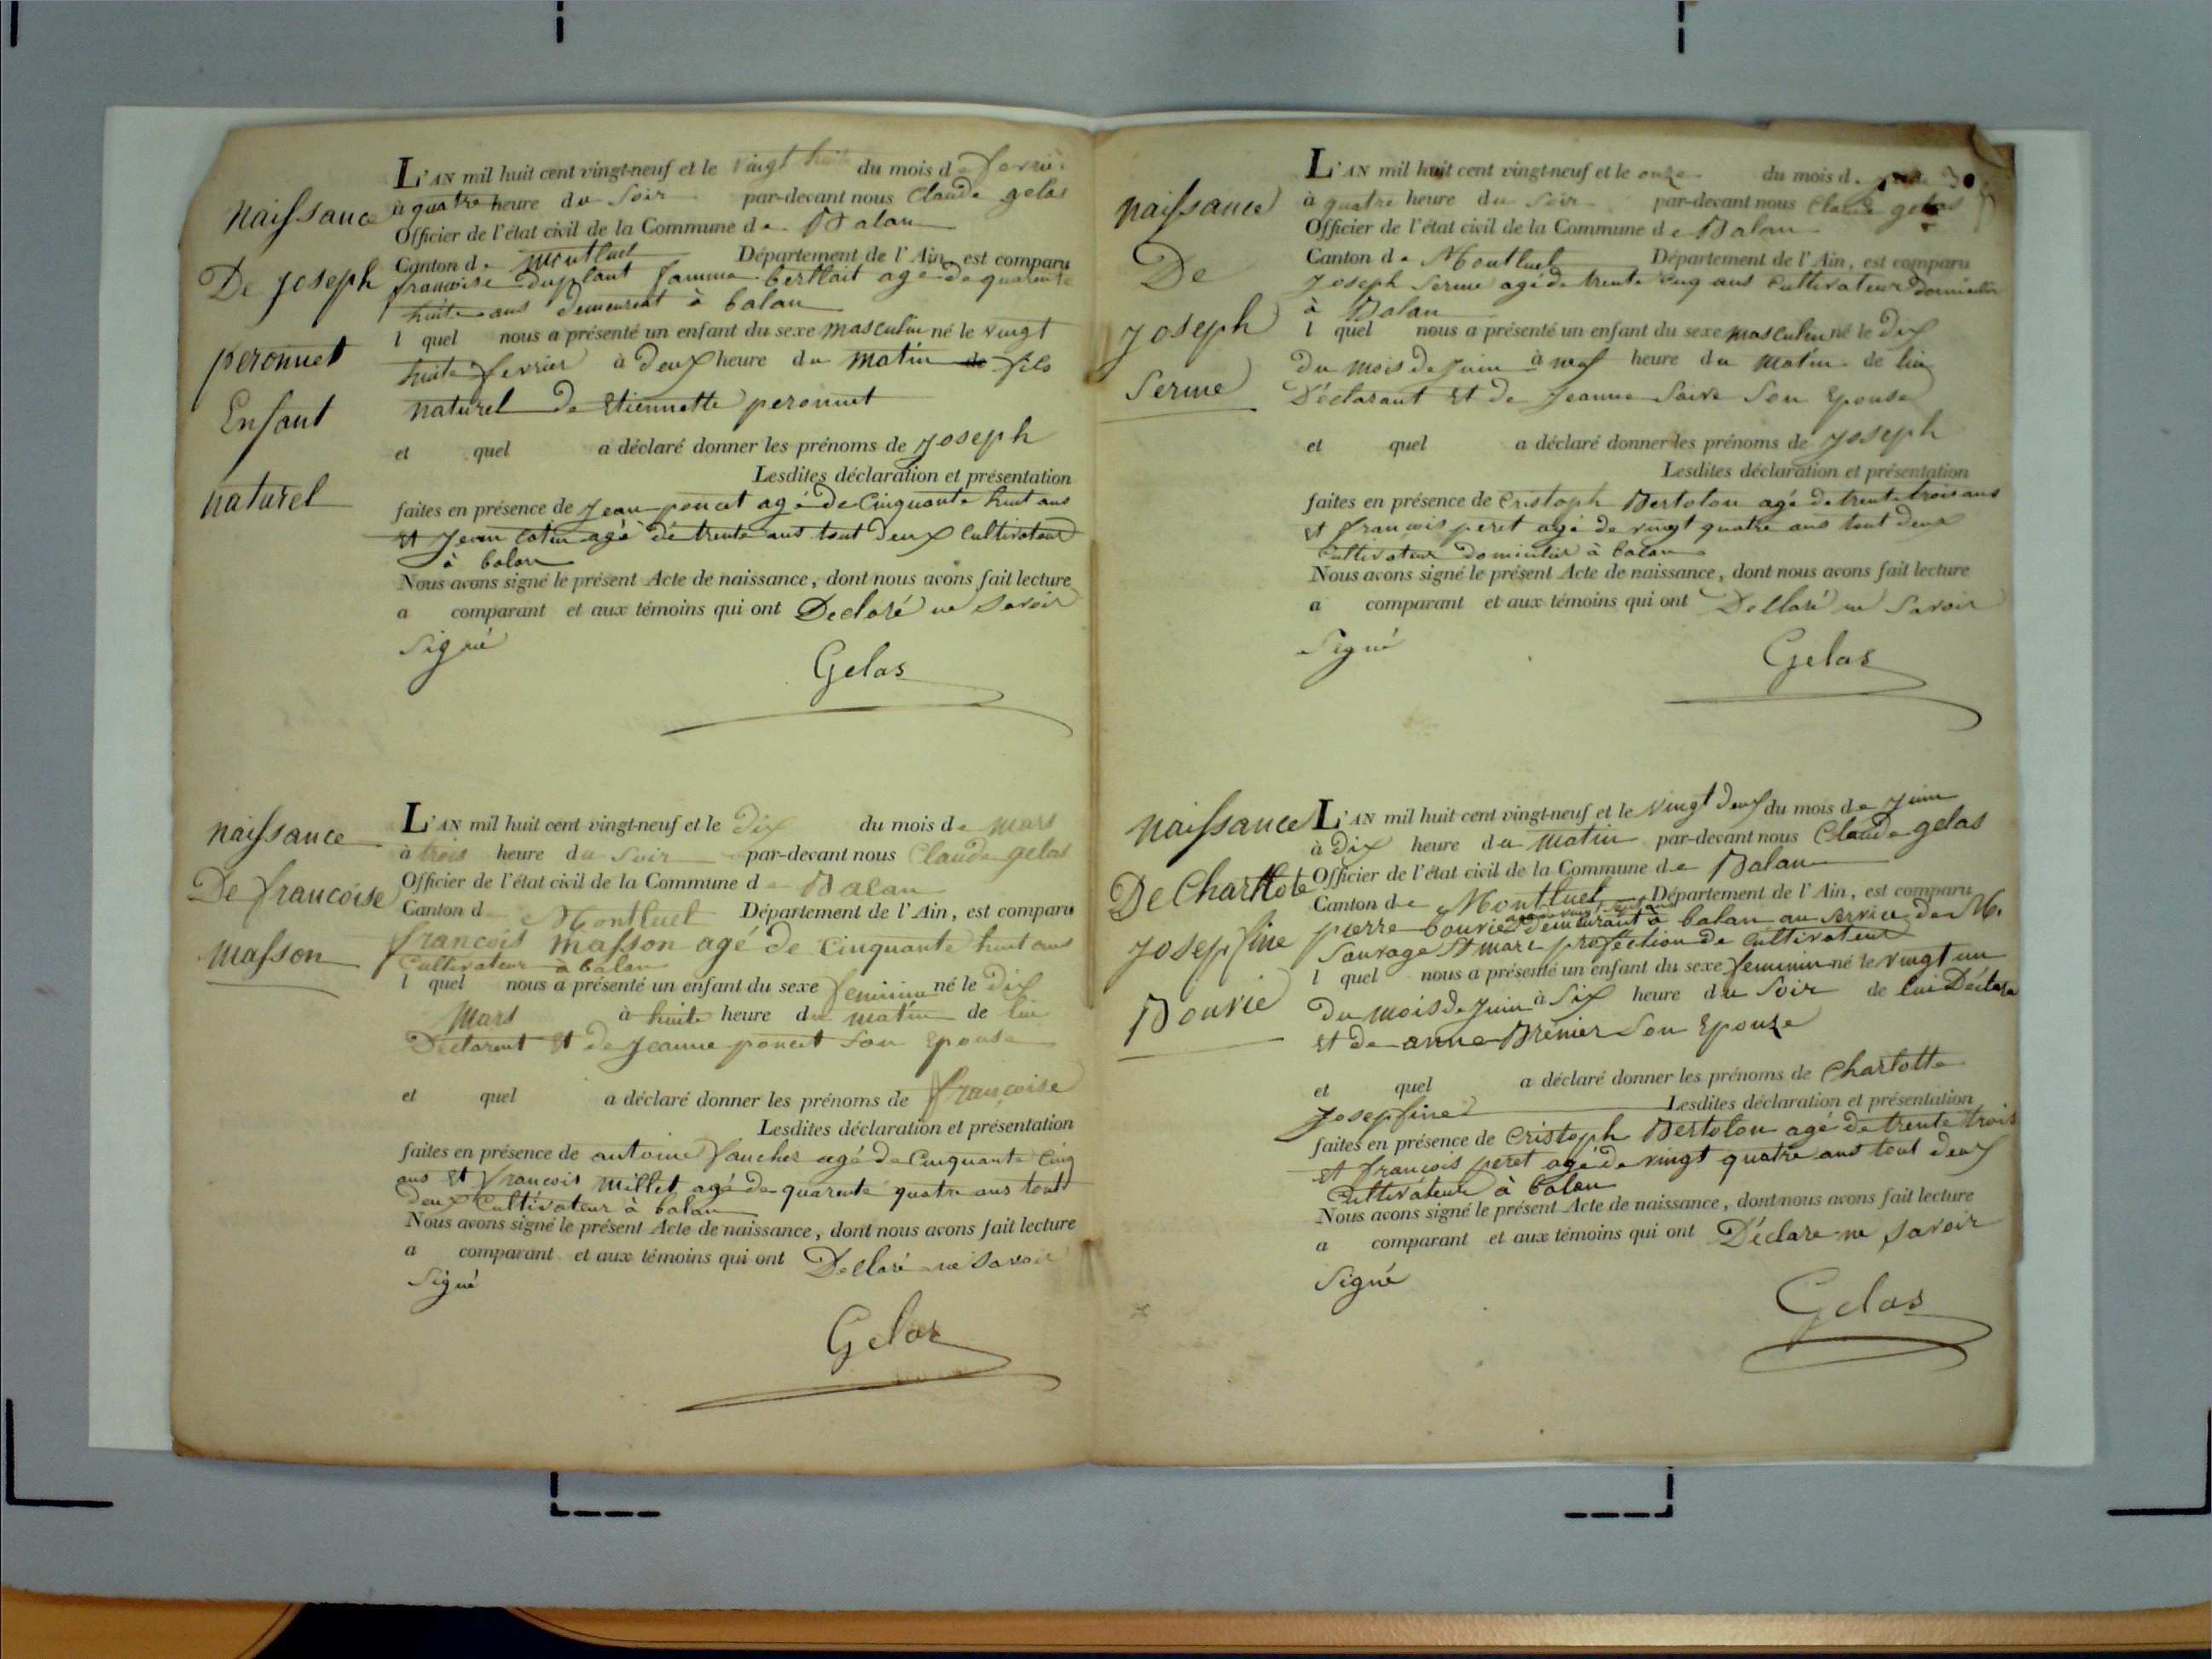 naissance
De Joseph
peronnet
Enfant
naturel
L'AN mil huit cent vingt-neuf et le vingt huit du mois de fevrier
à quatre heure du Soir par-devant nous Claude gelas
Officier de l'état civil de la Commune de Balan
Canton de Montluel Département de l'Ain, est comparu
francoise duplant famme berthait agé de quarente
huite ans demeurent à balan
l quel nous a présenté un enfant du sexe masculin né le vingt
huite fevrier à deux heure du matin de fils
naturel de Etiennette peronnet
et quel a déclaré donner les prénoms de Joseph
Lesdites déclaration et présentation
faites en présence de Jean poncet agé de Cinquante huit ans
et Jean Cotin agé de trente ans tout deux Cultivateur
à balan
Nous avons signé le présent Acte de naissance, dont nous avons fait lecture
a comparant et aux témoins qui ont Declaré ne Savoir
Signé
Gelas
naissance
De francoise
masson
L'AN mil huit cent vingt-neuf et le dix du mois de mars
à trois heure du Soir par-devant nous Claude gelas
Officier de l'état civil de la Commune de Balan
Canton de Montluel Département de l'Ain, est comparu
francois masson agé de Cinquante huit ans
Cultivateur à balan
l quel nous a présenté un enfant du sexe feminin né le dix
Mars à huite heure du matin de lui
Déclarent et de Jeanne poncet Son Epouse
et quel a déclaré donner les prénoms de françoise
Lesdites déclaration et présentation
faites en présence de antoine faucher agé de Cinquante Cinq
ans et francois Millet agé de quarente quatre ans tout
deux Cultivateur à balan
Nous avons signé le présent Acte de naissance, dont nous avons fait lecture
a comparant et aux témoins qui ont Declaré ne Savoir
Signé
Gelas
naissance
De
Joseph
Serme
L'AN mil huit cent vingt-neuf et le onze du mois de
à quatre heure du Soir par-devant nous Claude gelas
Officier de l'état civil de la Commune de Balan
Canton de Montluel Département de l'Ain, est comparu
Joseph Serme agé de trente Cinq ans Cultivateur
à Balan
l quel nous a présenté un enfant du sexe masculin né le Dix
du mois de Juin à neuf heure du matin de lui
Déclarant et de Jeanne Son Epouse
et quel a déclaré donner les prénoms de Joseph
Lesdites déclaration et présentation
faites en présence de Cristoph Bertolon agé de trente trois ans
et françois peret agé de vingt quatre ans tout deux
Cultivateur à balan
Nous avons signé le présent Acte de naissance, dont nous avons fait lecture
a comparant et aux témoins qui ont Dellaré ne Savoir
Signé
Gelas
naissance
De Charttote
Josepfine
Bouvie
L'AN mil huit cent vingt-neuf et le vingt deux du mois de Juin
à Dix heure du matin par-devant nous Claude gelas
Officier de l'état civil de la Commune de Balan
Canton de Montluel Département de l'Ain, est comparu
pierre bouvier demeurant à balan au service de Mr
Sauvage St marc profection de Cultivateur
l quel nous a présenté un enfant du sexe feminin né le vingt un
Du mois de Juin à Six heure du Soir de lui Déclara
et de anne Brenier Son Epouze
et quel a déclaré donner les prénoms de Charlotte
Josepfine
Lesdites déclaration et présentation
faites en présence de Cristoph Bertolon agé de trente trois
et françois peret agé de vingt quatre ans tout deux
Cultivateur à balan
Nous avons signé le présent Acte de naissance, dont nous avons fait lecture
a comparant et aux témoins qui ont Déclare ne Savoir
Signé
Gelas